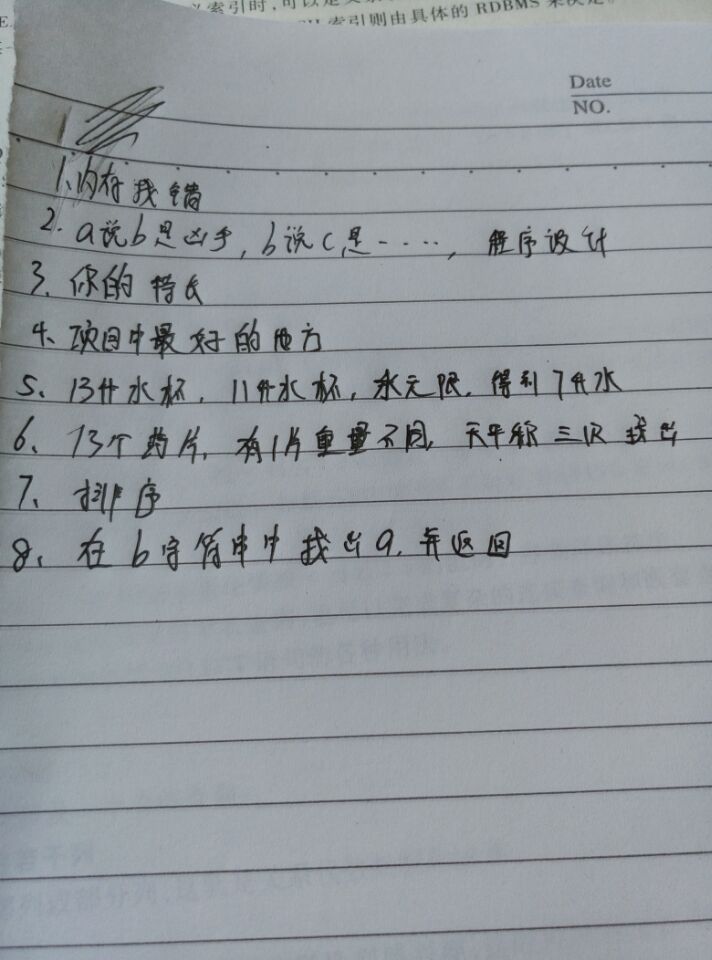 索引时,可以是
索引则由具体的 RDBMS 来决定。
Date
NO.
1、内存找错
2. a说b是凶手, b说c是……, 程序设计
3、你的特长
4、项目中最好的地方
5、13升水杯, 11升水杯, 水无限, 得到7升水
6、13个药片, 有1片重量不同, 天平称三次找出
7、排序
8、在b字符串中找出a, 并返回